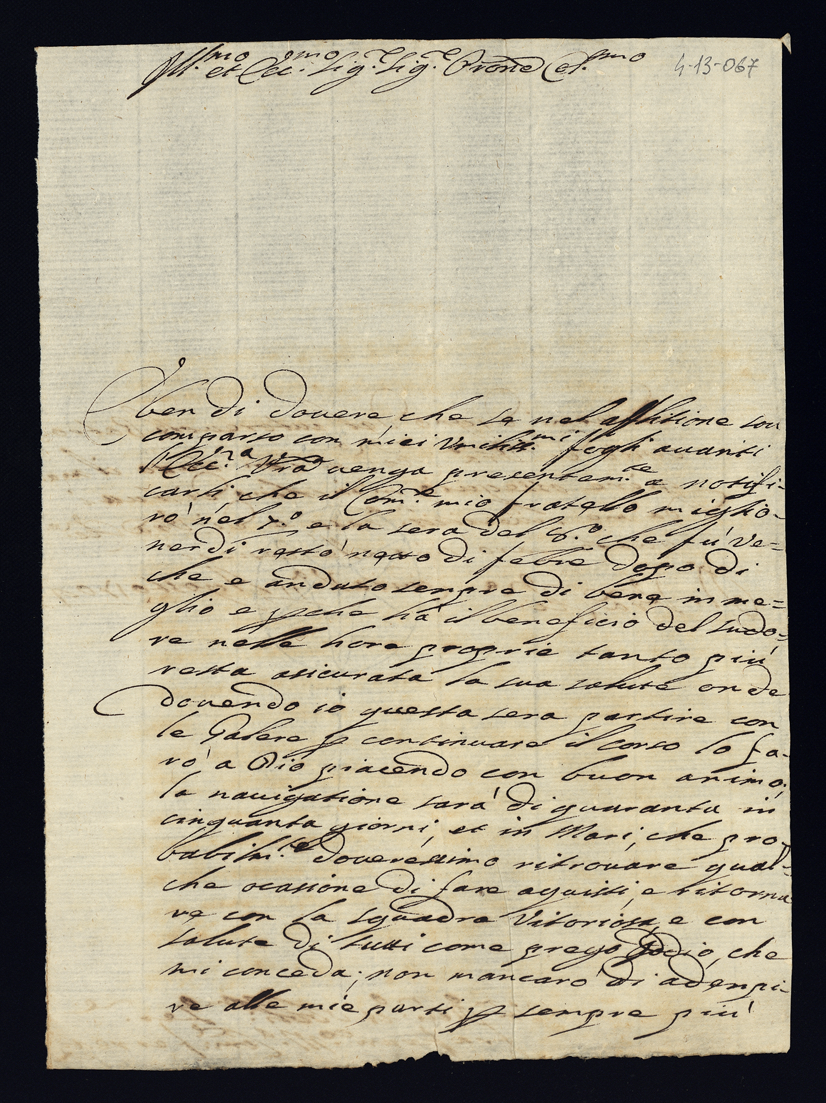 Ill.mo et Ecc.mo Sig.r Sig.re Prone Col.mo
4-13-067
E ben di dovere che se nel afflitione son
comparso con miei Umiliss.mi fogli avanti
l'Ecc.za Vra venga presentem.te a notifi=
carli che il Com.re mio fratello miglio=
rò nel 7.o e la sera del 6.o che fù Ve=
nerdi restò netto di febre dopo di
che e andato sempre di bene in me=
glio e p che hà il beneficio del sudo=
re nelle hore proprie tanto più
resta asicurata la sua salute onde
dovendo io questa sera partire con
le Galere p continuare il corso lo fa=
rò a Dio piacendo con buon animo;
la navigatione sarà di quaranta in
cinquanta giorni, et in Mari, che pro=
babilm.te doveressimo ritrovare qual=
che ocasione di fare aquisti, e ritorna
re con la squadra Vitoriosa, e con
salute di tutti come prego Iddio, che
mi conceda; non mancarò di adempi=
re alle mie parti p sempre più